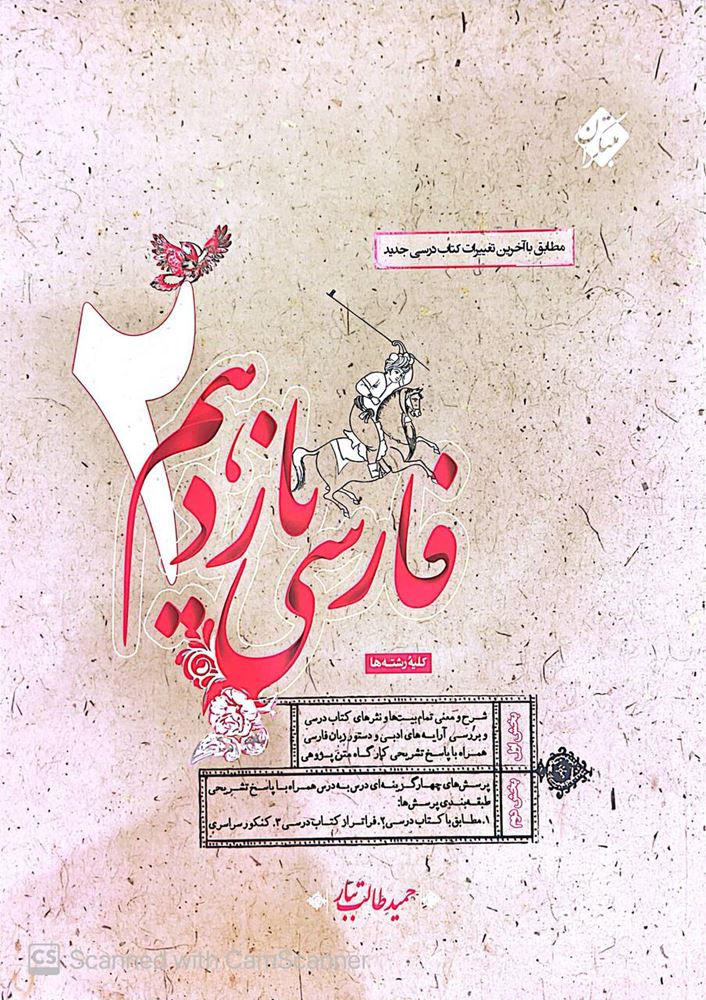 مبتکران
مطابق با آخرین تغییرات کتاب درسی جدید
فارسی یازدهم ۲
کلیهٔ رشته‌ها
بخش اول
شرح و معنی تمام بیت‌ها و نثرهای کتاب درسی
و بررسی آرایه‌های ادبی و دستور زبان فارسی
همراه با پاسخ تشریحی کارگاه متن‌پژوهی
بخش دوم
پرسش‌های چهارگزینه‌ای درس به درس همراه با پاسخ تشریحی
طبقه‌بندی پرسش‌ها:
۱. مطابق با کتاب درسی ۲. فراتر از کتاب درسی ۳. کنکور سراسری
حمید طالب تبار
CS Scanned with CamScanner